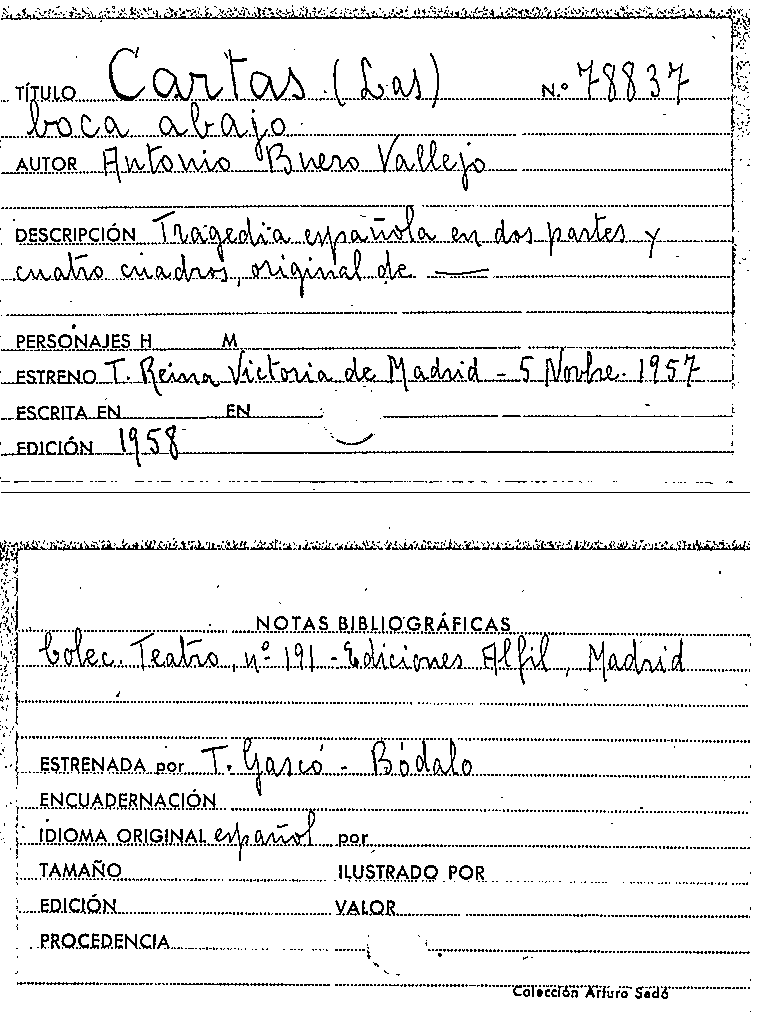 TÍTULO Cartas (Las) N.º 78837
boca abajo
AUTOR Antonio Buero Vallejo
DESCRIPCIÓN Tragedia española en dos partes y
cuatro cuadros, original de —
PERSONAJES H M
ESTRENO T. Reina Victoria de Madrid - 5 Novbre. 1957
ESCRITA EN EN
EDICIÓN 1958
NOTAS BIBLIOGRÁFICAS
Colec. Teatro, nº 191 - Ediciones Alfil, Madrid
ESTRENADA por T. Gascó - Bódalo
ENCUADERNACIÓN
IDIOMA ORIGINAL español por
TAMAÑO ILUSTRADO POR
EDICIÓN VALOR
PROCEDENCIA
Colección Arturo Sedó